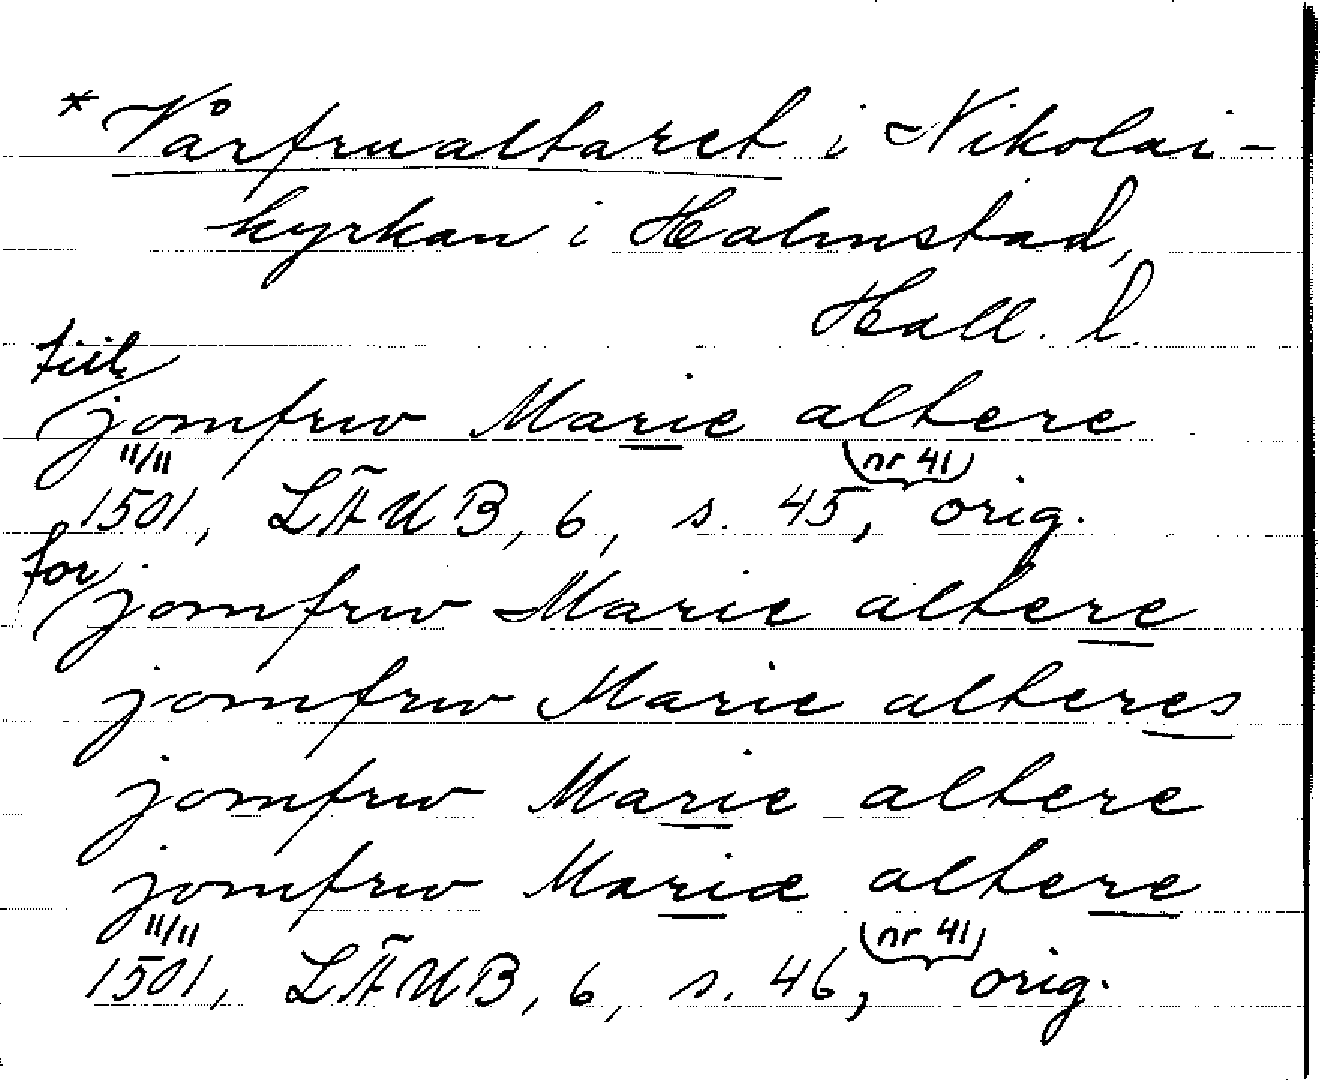 * Vårfrualtaret i Nikolai-
kyrkan i Halmstad,
Hall. l.
till
jomfrw Marie altere
11/11 (nr 41)
1501, LÄUB, 6, s. 45, orig.
for
jomfrw Marie altere
jomfrw Marie alteres
jomfrw Marie altere
jomfrw Mariæ altere
11/11 (nr 41)
1501, LÄUB, 6, s. 46, orig.